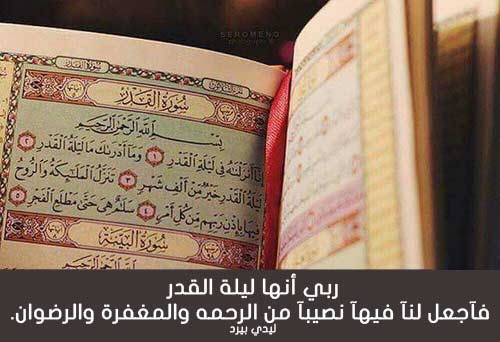 SEROMENO
سُورَةُ القَدْرِ
بِسْمِ اللَّهِ الرَّحْمَنِ الرَّحِيمِ
إِنَّا أَنزَلْنَهُ فِي لَيْلَةِ الْقَدْرِ ١ وَمَا أَدْرَىكَ مَا لَيْلَةُ الْقَدْرِ ٢
لَيْلَةُ الْقَدْرِ خَيْرٌ مِّنْ أَلْفِ شَهْرٍ ٣ تَنَزَّلُ الْمَلَئِكَةُ وَالرُّوحُ
فِيهَا بِإِذْنِ رَبِّهِم مِّن كُلِّ أَمْرٍ ٤ سَلَمٌ هِيَ حَتَّى مَطْلَعِ الْفَجْرِ ٥
سُورَةُ البَيِّنَةِ
ربي أنها ليلة القدر
فآجعل لنآ فيهآ نصيبآ من الرحمه والمغفرة والرضوان.
ليدي بيرد